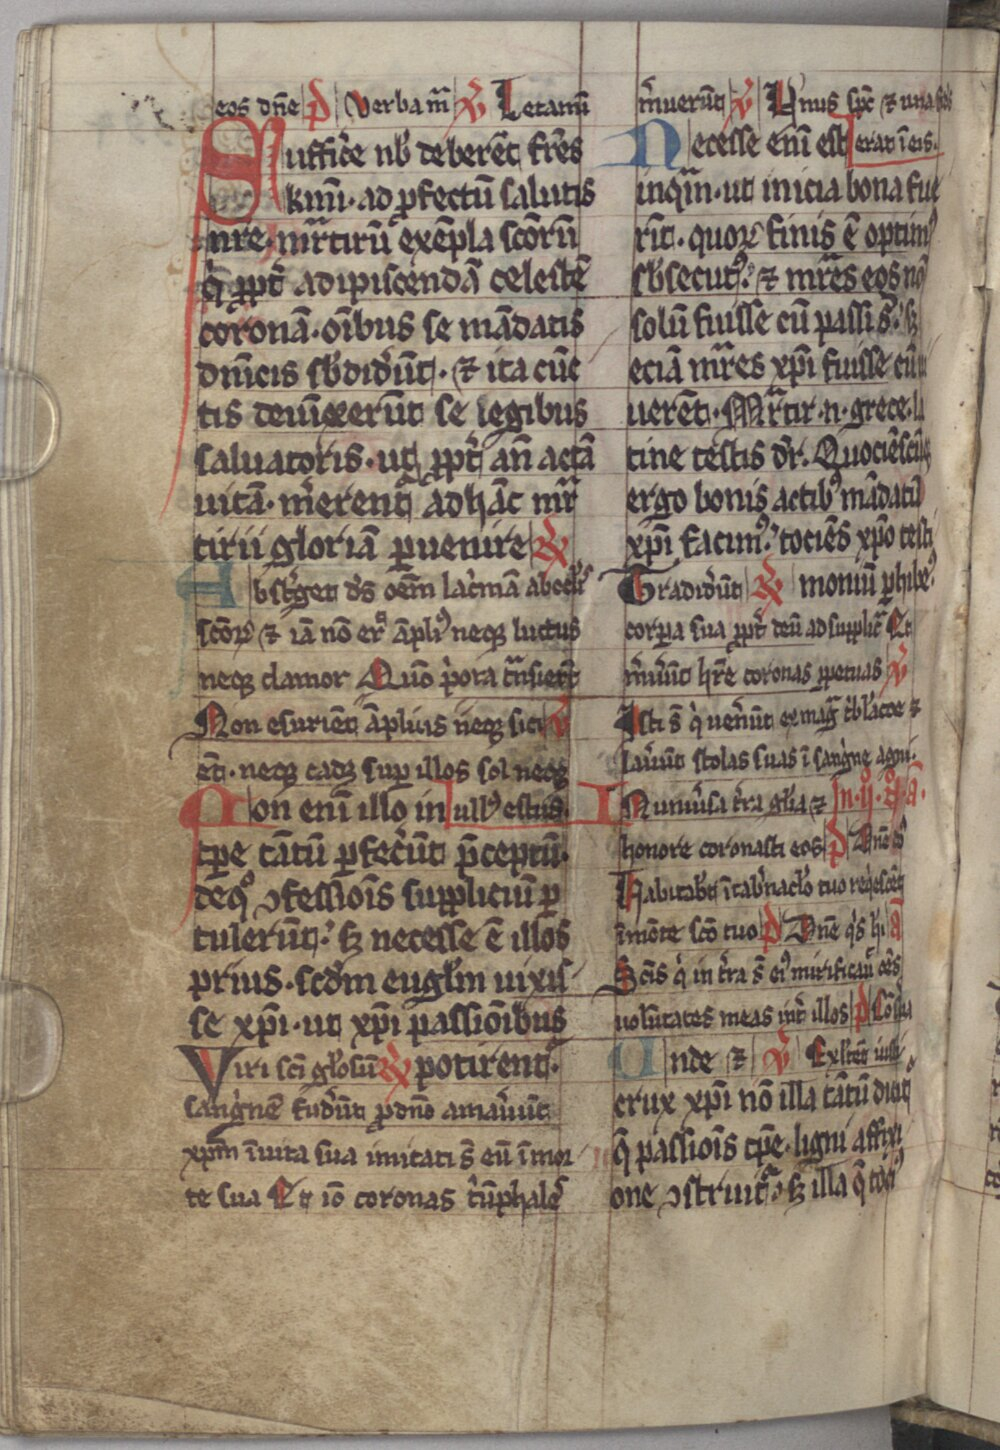 eos dn̄e p̄ Verba m̄ v̄ Letamī
Suffic̓e nb̓ deber̄et fr̄es
kmī· ad ꝓfectū salutis
nr̄e· mr̄tirū exēpla scōrū
q̓ ꝓpt̓ adipiscendā celestē
coronā· oīb⁹ se mādatis
dnīcis sb̓did̓ūt· ⁊ ita cūc
tis deuīxerūt se legibus
saluatoris· ut ꝓpt̓ an̄ actā
uitā· m̓erent̓ ad hāc mr̄
tirii gloriā ꝑuenire ℞
Abst̓get d̓s oēm lac̓mā ab ocl̓is
scōꝝ ⁊ iā nō er̓ āpli⁹ neqꝫ luctus
neqꝫ clamor Quō p̓ora t̄nsier̄t
Non esuriēt āplius neqꝫ siti v̄
ēt· neqꝫ cadꝫ suꝑ illos sol neqꝫ
Non enī illo in ull⁹ estus·
tꝑe tātū ꝑfec̓ūt p̄ceptū·
deqꝫ ꝯfessiōis suppliciū ꝑ
tulerūt· sꝫ necesse ē illos
prius· scd̓m eugl̓m uixis
se xp̄i· ut xp̄i passiōibus
Viri scī gl̓osū ℞ potirent̓·
sang̓nē fud̓ūt ꝓ dn̄o amau̓ūt
xp̄m ī uita sua imitati s̄ eū ī mor
te sua Et iō coronas t̓ūphales
m̓uerūt v̄ Vnus spc̄ ⁊ una fides
Necesse enī est erat ī eis·
inq̄m· ut inicia bona fue
rīt· quoꝝ finis ē optim⁹
sb̓secut⁹· ⁊ mr̄es eos nō
solū fuisse cū passi s̄· sꝫ
eciā mr̄es xp̄i fuisse cū ui
uerēt· Mr̄tir· n· grece· la
tine testis dr̄· Quociēscūqꝫ
ergo bonis actib⁹ mādatū
xp̄i facim⁹· tociēs xp̄o testi
Tradid̓ūt ℞ moniū ꝑhibe⁹
corꝑa sua ꝓpt̓ deū ad supplic̓ Et
m̓uer̄ūt hr̄e coronas ꝑpetuas v̄
Isti s̄ q̓ uen̓ūt ex mag̓ t̓bl̓acōe ⁊
lau̓ūt stolas suas ī sang̓ne agni·
In uniu̓sa t̓ra gl̓ia ⁊ In · ij · ꝺ̊ · ā ·
honore coronasti eos p̄ Dn̄e dō
Habitab̓t ī tab̓nacl̓o tuo reqescēt
ī mōte scō tuo p̄ Dn̄e q̓s hī ā
Scīs q̓ in t̓ra s̄ ei⁹ mirificau̓ oēs
uolūtates meas int̓ illos p̄ Cōs̓ua
Unde ⁊ v̄ Exltēt iusti
crux xp̄i nō illa tātū dicit̓
q̄ passiōis tꝑe· ligni affixi
one ꝯstruit̓· sꝫ illa q̄ toci⁹